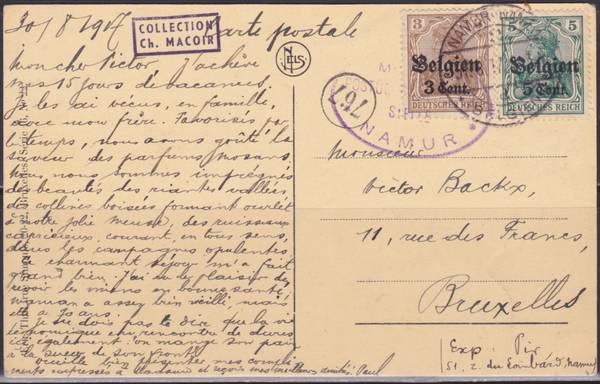 30/8 1917
COLLECTION
Ch. MACOIR
Carte postale
NELS
Mon cher Victor, J'achève
mes 15 jours de vacances.
Je les ai vécus, en famille,
avec mon frère. Favorisés par
le temps, nous avons goûté la
saveur des parfums mosans.
Nous nous sommes imprégnés
des beautés des riantes vallées,
des collines boisées formant ourlet
à notre jolie Meuse, des ruisseaux
capricieux, courant, en tous sens,
dans les campagnes opulentes.
Ce charmant séjour m'a fait
grand bien. J'ai eu le plaisir de
revoir les miens en bonne santé.
Maman a assez bien vieilli mais
elle a 70 ans.
Je ne dois pas te dire que la vie
économique
également: on mange son pain
à la sueur de son front.
présenter mes compli
ments empressés à Madame et reçois mes meilleures amitiés. Paul
3
Belgien
3 Cent.
DEUTSCHES REICH
5
Belgien
5 Cent.
DEUTSCHES REICH
NAMUR
767
NAMUR
Monsieur
Victor Backx,
11, rue des Francs,
Bruxelles
Exp. Pir
51, r. du Lombard, Namur